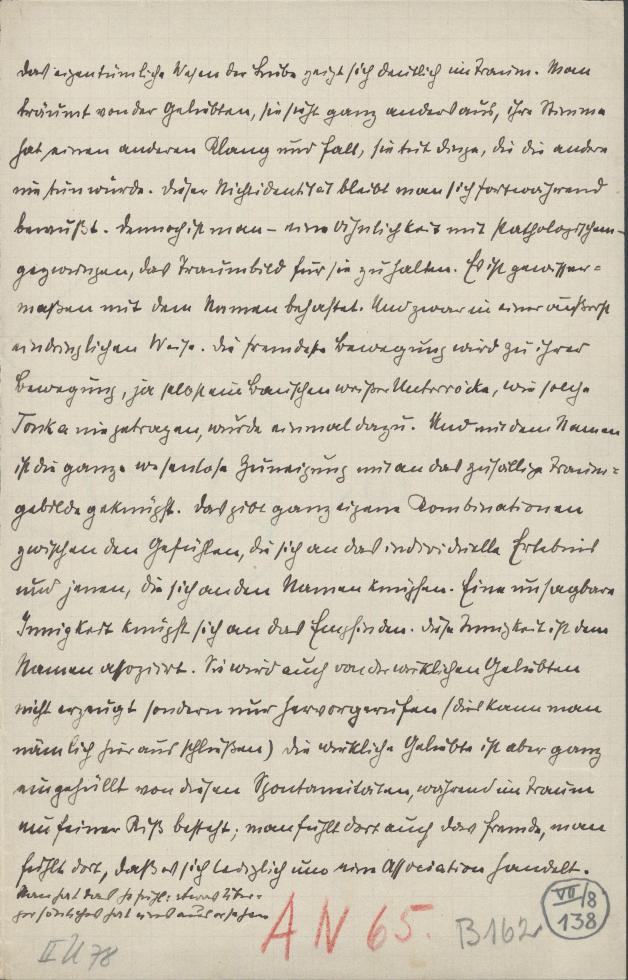 Das eigentümliche Wesen der Liebe zeigt sich deutlich im Traum. Man
träumt von der Geliebten, sie sieht ganz anders aus, ihre Stimme
hat einen anderen Klang und Fall, sie tut Dinge, die die andere
nie tun würde. Dieser Nichtidentität bleibt man sich fortwährend
bewußt. Dennoch ist man – eine Ähnlichkeit mit Pathologischem –
gezwungen, das Traumbild für sie zu halten. Es ist gewisser=
maßen mit dem Namen behaftet. Und zwar in einer äußerst
eindringlichen Weise. Die fremdeste Bewegung wird zu ihrer
Bewegung, ja selbst ein Bauschen weißer Unterröcke, wie solche
Tonka nie getragen, wurde einmal dazu. Und mit dem Namen
ist die ganze wesenlose Zuneigung mit an das zufällige Traum=
gebilde geknüpft. Das gibt ganz eigene Kombinationen
zwischen den Gefühlen, die sich an das individuelle Erlebnis
und jenen, die sich an den Namen knüpfen. Eine unsagbare
Innigkeit knüpft sich an das Empfinden. Diese Innigkeit ist dem
Namen assoziirt. Sie wird auch von der wirklichen Geliebten
nicht erzeugt sondern nur hervorgerufen (dies kann man
nämlich hieraus schließen) die wirkliche Geliebte ist aber ganz
eingehüllt von diesen Spontaneitäten, während im Traum
ein feiner Riß besteht; man fühlt dort auch das Fremde, man
fühlt dort, daß es sich lediglich um eine Association handelt.
Man hat das Gefühl: etwas Über=
persönliches hat uns ausersehen
AN 65.
B 162
VII/8
138
II U 78